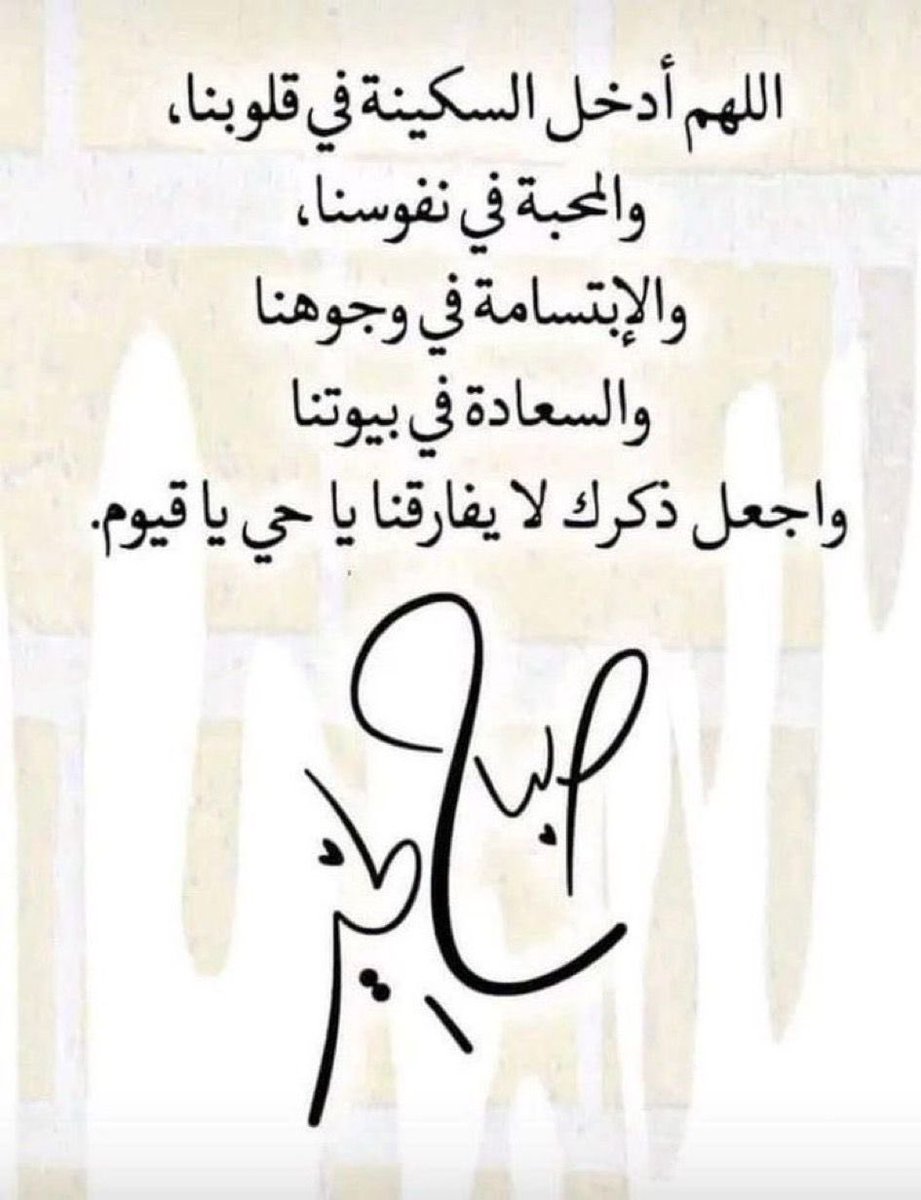 اللهم أدخل السكينة في قلوبنا،
والمحبة في نفوسنا،
والإبتسامة في وجوهنا
والسعادة في بيوتنا
واجعل ذكرك لا يفارقنا يا حي يا قيوم.
صباح الخير